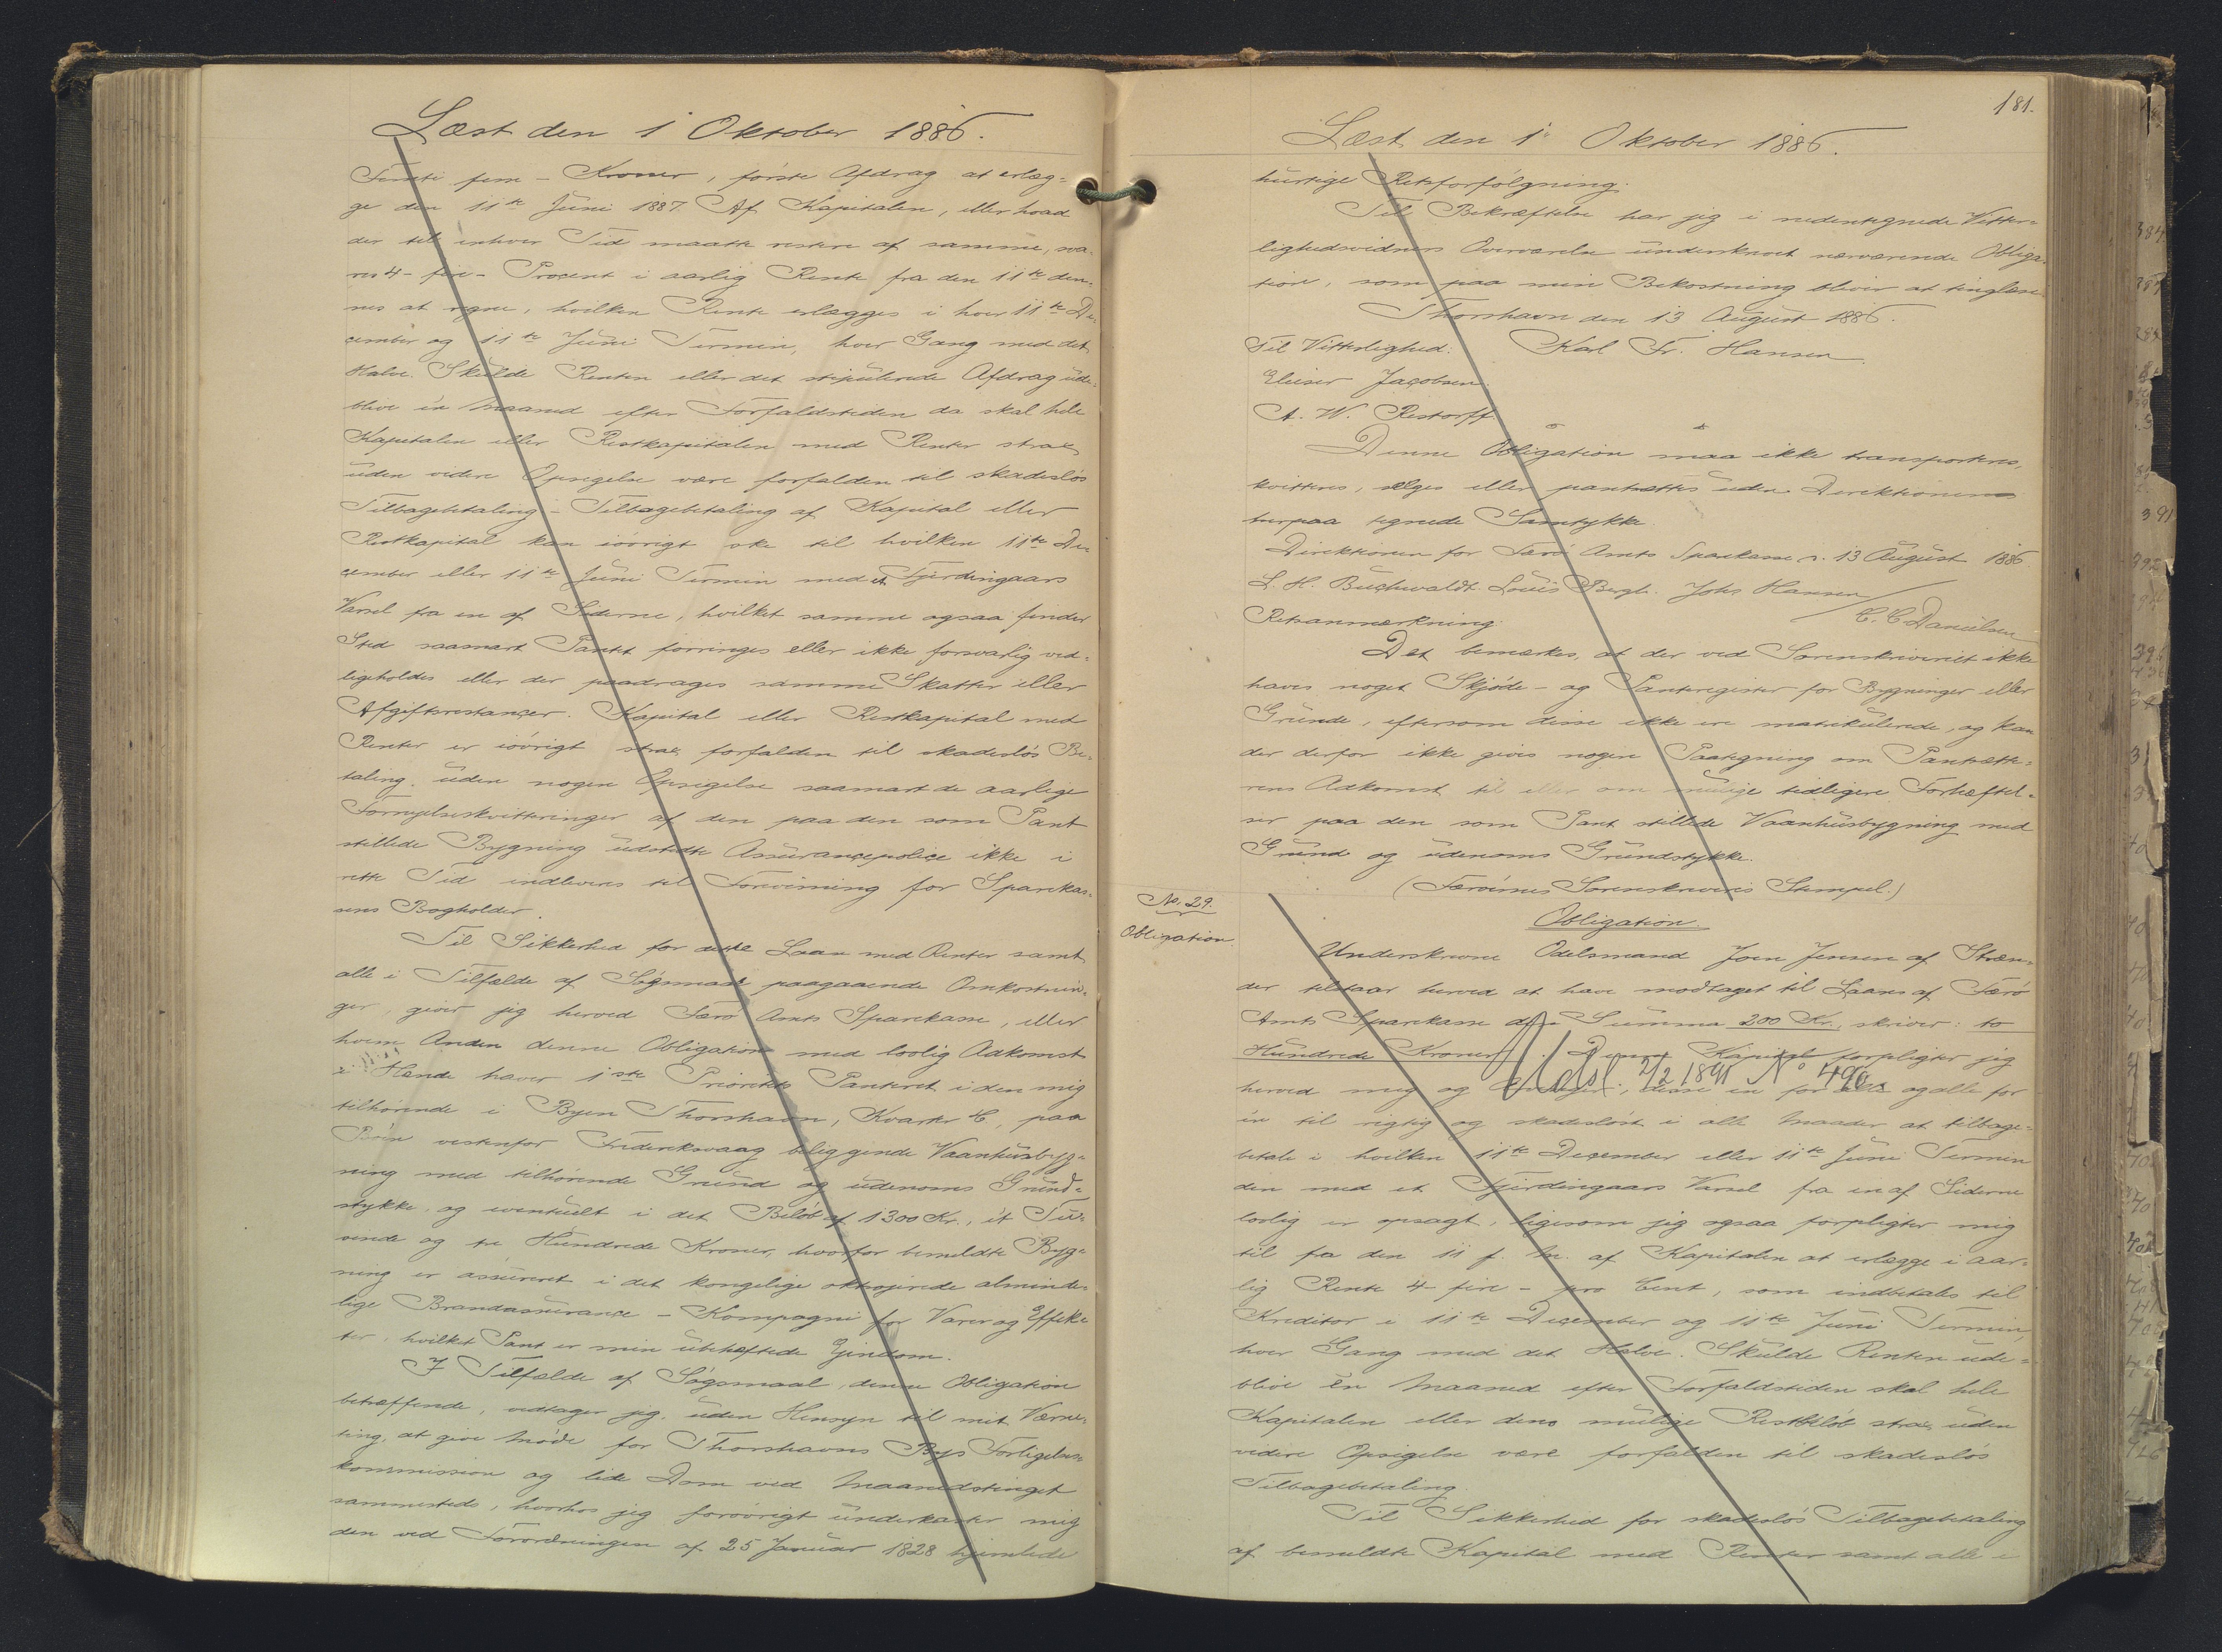 Læst den 1 Oktober 1886.
Femti fem - Kroner, første Afdrag at erlæg=
ge den 11te Juni 1887. Af Kapitalen, eller hvad
der til enhver Tid maatte restere af samme, sva-
res 4 - fire - Procent i aarlig Rente fra den 11te den-
nes at regne, hvilken Rente erlægges i hver 11te De
cember og 11te Juni Termin, hver Gang med det
Halve. Skulde Renten eller det stipulerede Afdrag ude=
blive én Maaned efter Forfaldstiden da skal hele
Kapitalen eller Restkapitalen med Renter strax
uden videre Opsigelse være forfalden til skadesløs
Tilbagebetaling - Tilbagebetaling af Kapital eller
Restkapital kan iøvrigt ske til hvilken 11te De
cember eller 11te Juni Termin med et Fjerdingaars
Varsel fra en af Siderne, hvilket samme ogsaa finder
Sted saasnart Pantet forringes eller ikke forsvarlig ved=
ligeholdes eller der paadrages samme Skatter eller
Afgiftsrestancer. Kapital eller Restkapital med
Renter er iøvrigt strax forfalden til skadesløs Be=
taling uden nogen Opsigelse saasnart de aarlige
Fornyelseskvitteringer af den paa den som Pant
stillede Bygning udstedte Assurancepolice ikke i
rette Tid indleveres til Forvaring for Sparekas=
sens Bogholder.
Til Sikkerhed for dette Laan med Renter samt
alle i Tilfælde af Søgsmaal paagaaende Omkostnin=
ger, giver jeg herved Færø Amts Sparekasse, eller
hvem Anden denne Obligation med lovlig Adkomst
i Hænde haver 1ste Prioritets Panteret i den mig
tilhørende i Byen Thorshavn, Kvarter C, paa
Bøen vestenfor Frederiksvaag beliggende Vaanhusbyg=
ning med tilhørende Grund og udenoms Grund=
stykke, og eventuelt i det Beløb af 1300 Kr., ét Tu=
sinde og tre Hundrede Kroner, hvorfor bemeldte Byg=
ning er assureret i det kongelige oktrojerede alminde=
lige Brandassurance - Kompagni for Varer og Effek=
ter, hvilket Pant er min ubehæftede Ejendom.
I Tilfælde af Søgsmaal, denne Obligation
betræffende, vedtager jeg, uden Hensyn til mit Værne=
ting, at give Møde for Thorshavns Bys Forligelses=
kommission og lide Dom ved Maanedstinget
sammesteds, hvorhos jeg forøvrigt underkaster mig
den ved Forordningen af 25 Januar 1828 hjemlede
181.
Læst den 1' Oktober 1886.
hurtige Retsforfølgning.
Til Bekræftelse har jeg i nedentegnede Vitter=
lighedsvidners Overværelse underskrevet nærværende Obliga=
tion, som paa min Bekostning bliver at tinglæse
Thorshavn den 13 August 1886.
Til Vitterlighed: Karl Fr. Hansen.
Elieser Jacobsen.
A. W. Restorff
Denne Obligation maa ikke transporteres,
kvitteres, sælges eller pantsættes uden Direktionens
herpaa tegnede Samtykke.
Direktionen for Færø Amts Sparekasse d. 13 August 1886
L. H. Buchwaldt. Louis Bergh. Johs Hansen
/ C. C Danielsen
Retsanmærkning:
Det bemærkes, at der ved Sorenskriveriet ikke
haves noget Skjøde - og Panteregister for Bygninger eller
Grunde, eftersom disse ikke ere matrikulerede, og kan
der derfor ikke gives nogen Paategning om Pantsætte=
rens Adkomst til eller om mulige tidligere Forhæftel=
ser paa den som Pant stillede Vaanhusbygning med
Grund og udenoms Grundstykke.
(Færøernes Sorenskriveris Stempel.)
No. 29.
Obligation.
Obligation.
Underskrevne Odelsmand Joen Jensen af Stræn=
der tilstaar herved at have modtaget til Laans af Færø
Amts Sparekasse den Summa 200 Kr., skriver: to
Hundrede Kroner. Denne Kapital forpligter jeg
Udsl 2/2 1891 No 490.
herved mig og Arvinger, disse en for alle og alle for
én til rigtig og skadesløst i alle Maader at tilbage=
betale i hvilken 11te December eller 11te Juni Termin
den med et Fjerdingaars Varsel fra en af Siderne
lovlig er opsagt, ligesom jeg ogsaa forpligter mig
til fra den 11 f. M. af Kapitalen at erlægge i aar=
lig Rente 4 - fire - pro Cent, som indbetales til
Kreditor i 11te December og 11te Juni Termin,
hver Gang med det Halve. Skulde Renten ude=
blive én Maaned efter Forfaldstiden skal hele
Kapitalen eller dens mulige Restbeløb strax uden
videre Opsigelse være forfalden til skadesløs
Tilbagebetaling.
Til Sikkerhed for skadesløs Tilbagebetaling
af bemeldte Kapital med Renter samt alle i